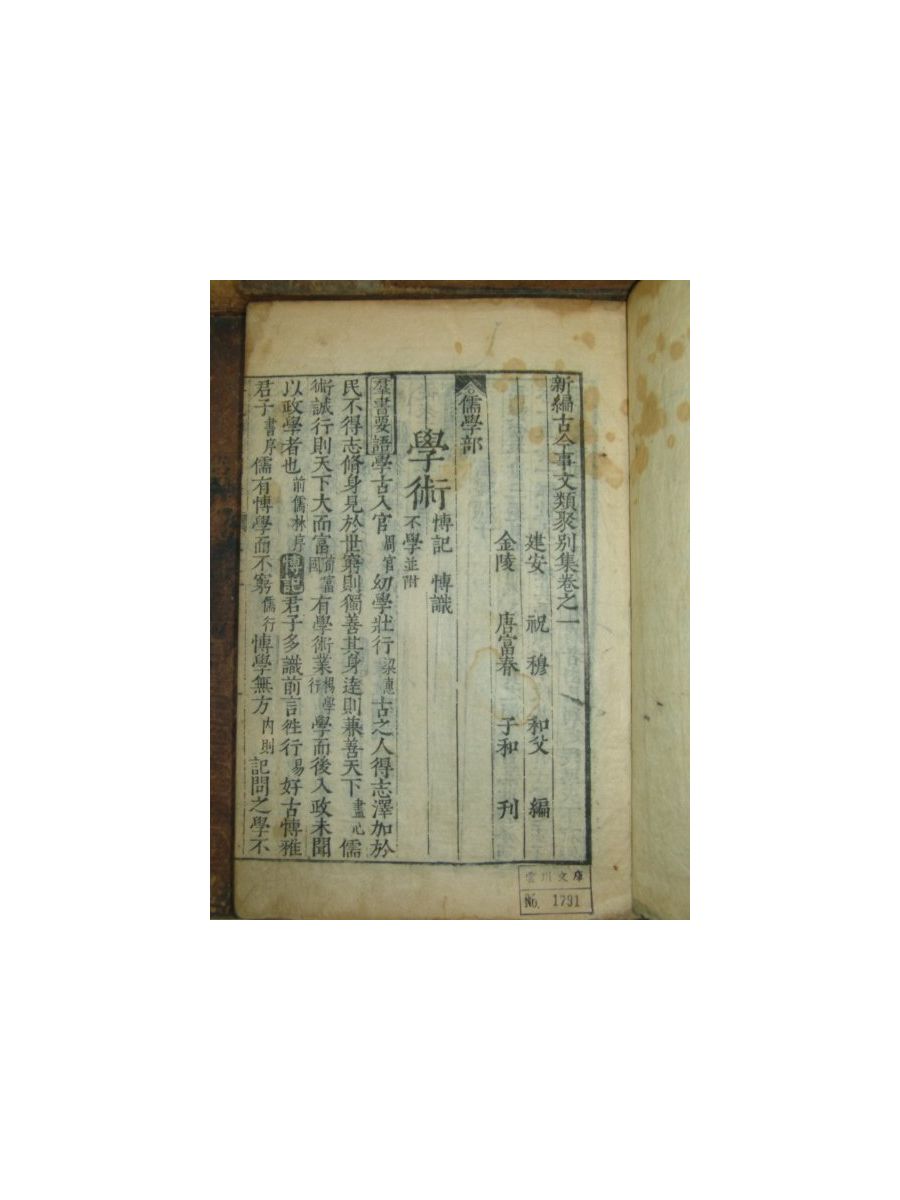 新編古今事文類聚别集卷之一
建安 祝穆 和父 編
金陵 唐富春 子和 刊
儒學部
學術 博記 博識 不學並附
羣書要語學古入官周官幼學壯行梁惠古之人得志澤加於
民不得志脩身見於世窮則獨善其身達則兼善天下盡心儒
術誠行則天下大而富荀富國有學術業楊學行學而後入政未聞
以政學者也前儒林序博記君子多識前言徃行易好古博雅
君子書序儒有博學而不窮儒行博學無方内則記問之學不
雲川文庫
No. 1791